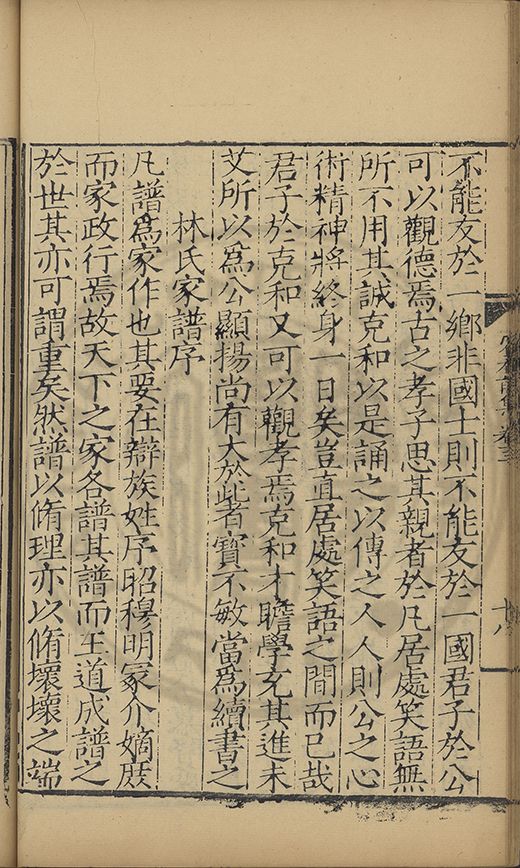 不能友於一鄉非國士則不能友於一國君子於公
可以觀德焉古之孝子思其親者於凡居處笑語無
所不用其誠克和以是誦之以傳之人人則公之心
術精神將終身一日矣豈直居處笑語之間而已哉
君子於克和又可以觀孝焉克和才贍學充其進未
艾所以為公顯揚尚有大於此者寶不敏當為續書之
林氏家譜序
凡譜為家作也其要在辯族姓序昭穆明冢介嫡庶
而家政行焉故天下之家各譜其譜而王道成譜之
於世其亦可謂重矣然譜以脩理亦以脩壞壞之端
卷三
十八